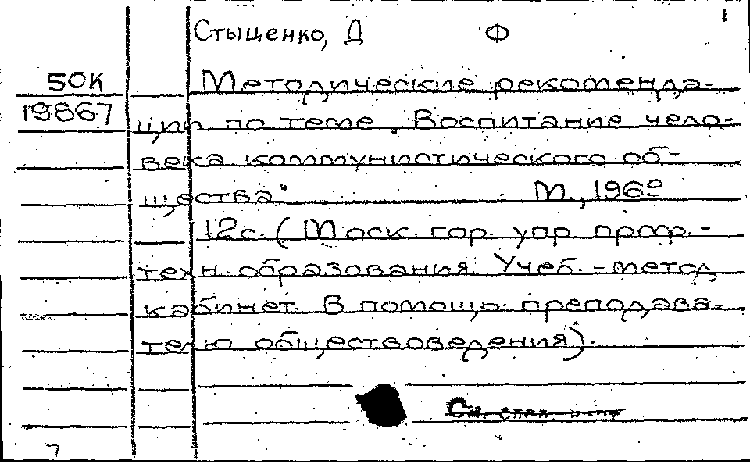 Стыценко, Д Ф
50К Методические рекоменда-
19867 ции по теме „Воспитание чело-
века коммунистического об-
щества“ М., 196
12с. (Моск. гор. упр. проф.-
техн. образования. Учеб.-метод.
кабинет. В помощь преподава-
телю обществоведения).